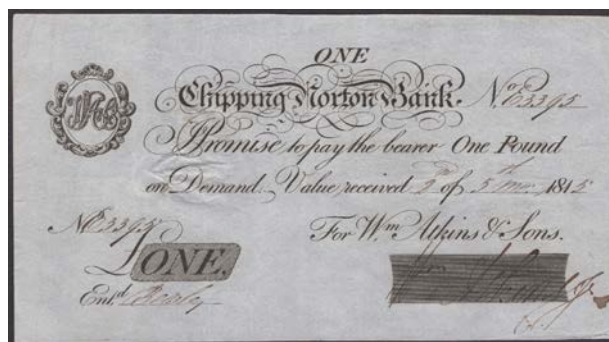 ONE
Chipping Norton Bank. No E3395
Promise to pay the bearer One Pound
on Demand. Value received 2d of 5th mo. 1815
No E3395
For Wm Atkins & Sons.
£ONE.
Entd